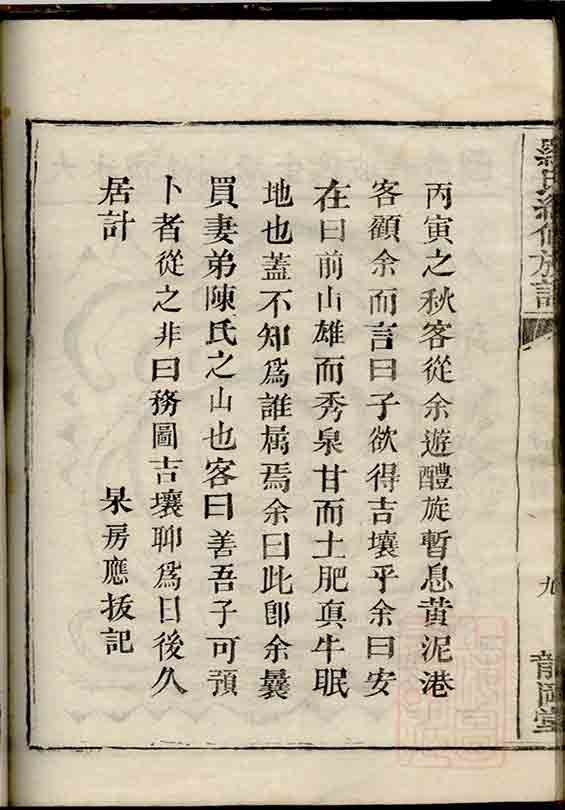 丙寅之秋客從余遊醴旋暫息黄泥港
客顧余而言曰子欲得吉壤乎余曰安
在曰前山雄而秀泉甘而土肥眞牛眠
地也蓋不知爲誰屬焉余曰此卽余曩
買妻弟陳氏之山也客曰善吾子可預
卜者從之非曰務圖吉壤聊爲日後久
居計
杲房應拔記
九